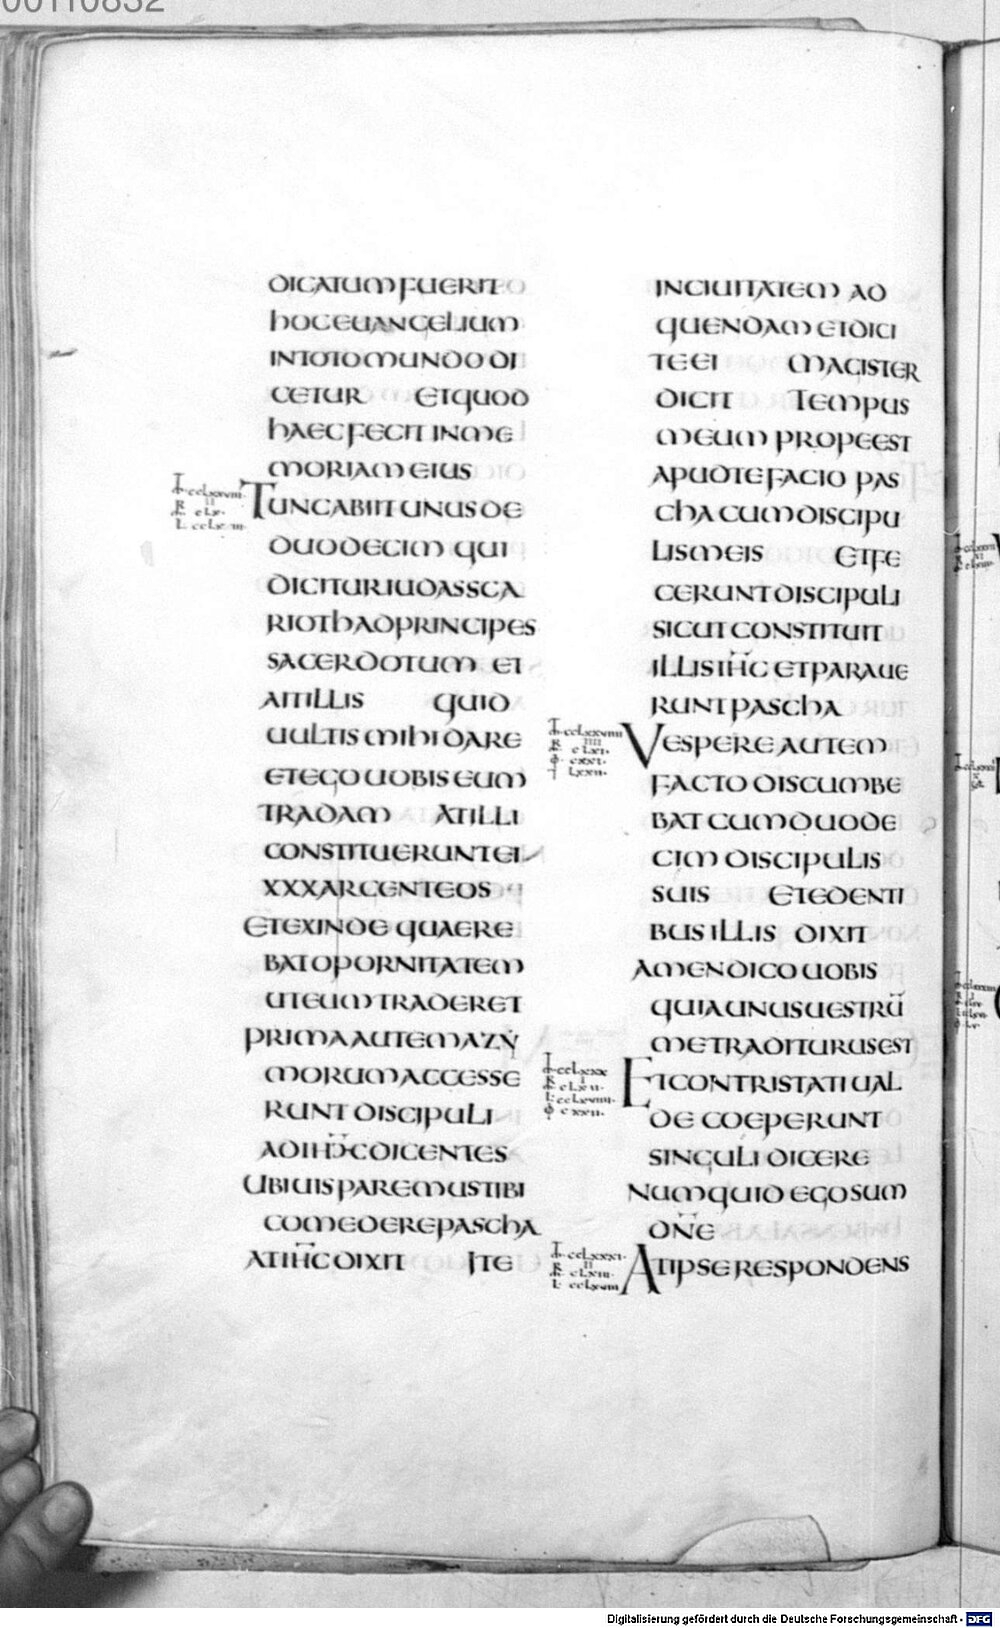 00110832
DICATUM FUERIT
HOC EUANGELIUM
IN TOTO MUNDO DI
CETUR ET QUOD
HAEC FECIT IN ME
MORIAM EIUS
TUNC ABIIT UNUS DE
DUODECIM QUI
DICITUR IUDAS SCA
RIOTH AD PRINCIPES
SACERDOTUM ET
AIT ILLIS QUID
UULTIS MIHI DARE
ET EGO UOBIS EUM
TRADAM AT ILLI
CONSTITUERUNT EI
XXX ARGENTEOS
ET EXINDE QUAERE
BAT OPORNITATEM
UT EUM TRADERET
PRIMA AUTEM AZY
MORUM ACCESSE
RUNT DISCIPULI
AD IHC DICENTES
UBI UIS PAREMUS TIBI
COMEDERE PASCHA
AT IHC DIXIT ITE
IN CIUITATEM AD
QUENDAM ET DICI
TE EI MAGISTER
DICIT TEMPUS
MEUM PROPE EST
APUD TE FACIO PAS
CHA CUM DISCIPU
LIS MEIS ET FE
CERUNT DISCIPULI
SICUT CONSTITUIT
ILLIS IHC ET PARAUE
RUNT PASCHA
VESPERE AUTEM
FACTO DISCUMBE
BAT CUM DUODE
CIM DISCIPULIS
SUIS ET EDENTI
BUS ILLIS DIXIT
AMEN DICO UOBIS
QUIA UNUS UESTRŪ
ME TRADITURUS EST
ET CONTRISTATI UAL
DE COEPERUNT
SINGULI DICERE
NUMQUID EGO SUM
DNE
AT IPSE RESPONDENS
Digitalisierung gefördert durch die Deutsche Forschungsgemeinschaft - DFG